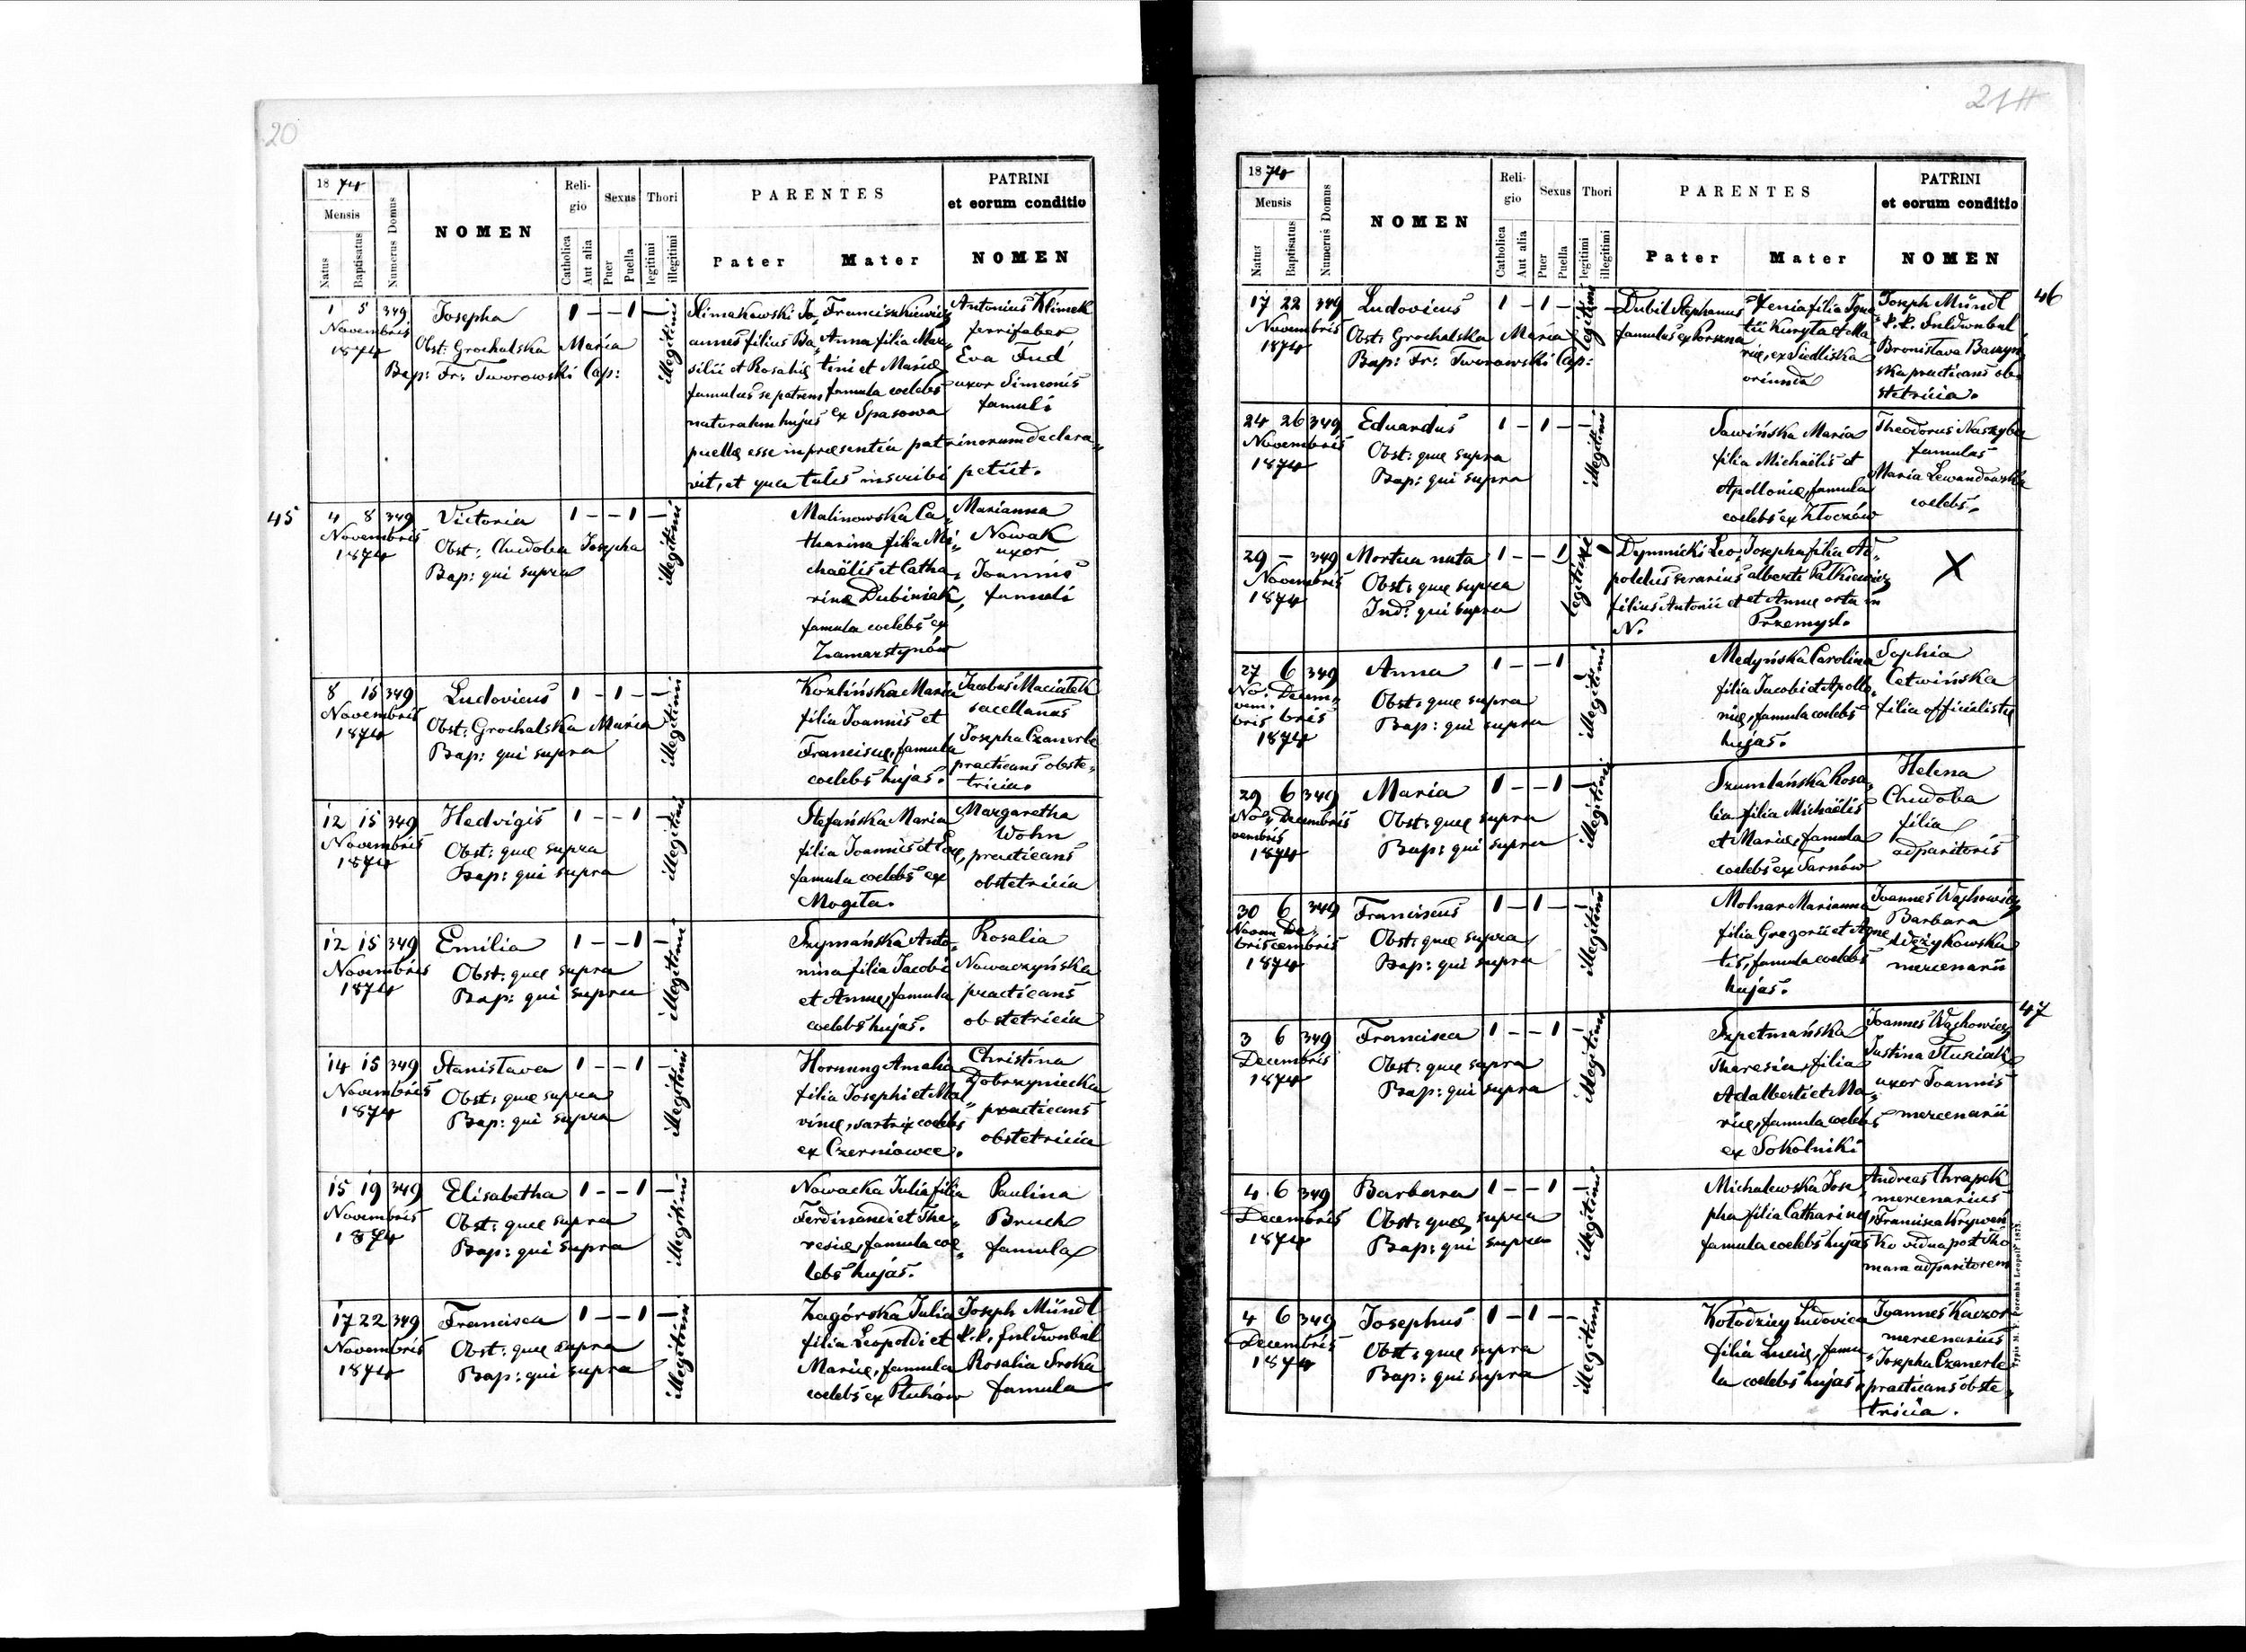 20
18 74
Mensis
Natus
Baptisatus
Numerus Domus
NOMEN
Reli-
gio
Catholica
Aut alia
Sexus
Puer
Puella
Thori
legitimi
illegitimi
PARENTES
Pater
Mater
PATRINI
et eorum conditio
NOMEN
1 5 349 Josepha 1 - - 1 -
Novembris
1874
Obst: Grochalska Maria
Bap: Fr: Tworowski Cap:
illegitimi
Slimakowski Jo„
annes filius Ba„
silii et Rosaliæ
famulus se patrem
naturalem hujus
Franciszkiewicz
Anna filia Mar„
tini et Mariæ
famula coelebs
ex Spasowa
puellæ esse in præsentia patrinorum declara„
vit, et qua talis inscribi petiit.
Antonius Klimek
ferrifaber
Eva Fud
uxor Simeonis
famuli
45
4 8 349 Victoria 1 - - 1 -
Novembris
1874
Obst: Chudoba Josepha
Bap: qui supra
illegitimi
Malinowska Ca„
tharina filia Mi„
chaëlis et Catha„
rinæ Dubiniak,
famula coelebs ex
Zamarstynów
Marianna
Nowak
uxor
Joannis
famuli
8 15 349 Ludovicus 1 - 1 - -
Novembris
1874
Obst: Grochalska Maria
Bap: qui supra
illegitimi
Kozlińska Maria
filia Joannis et
Franciscæ, famula
coelebs hujas.
Jacobus Maciałek
sacellanus
Josepha Czanerle
practicans obste„
tricia.
12 15 349 Hedvigis 1 - - 1 -
Novembris
1874
Obst: quæ supra
Bap: qui supra
illegitimi
Stefańska Maria
filia Joannis et Evæ,
famula coelebs ex
Mogiła.
Margaretha
Wohn
practicans
obstetricia
12 15 349 Emilia 1 - - 1 -
Novembris
1874
Obst: quæ supra
Bap: qui supra
illegitimi
Szymańska Anto„
nina filia Jacobi
et Annæ, famula
coelebs hujas.
Rosalia
Nowaczyńska
practicans
obstetricia
14 15 349 Stanislava 1 - - 1 -
Novembris
1874
Obst: quæ supra
Bap: qui supra
illegitimi
Hornung Amalia
filia Josephi et Mal„
vinæ, sartrix coelebs
ex Czerniowce.
Christina
Dobrzyniecka
practicans
obstetricia
15 19 349 Elisabetha 1 - - 1 -
Novembris
1874
Obst: quæ supra
Bap: qui supra
illegitimi
Nowacka Julia filia
Ferdinandi et The„
resiæ, famula coe„
lebs hujas.
Paulina
Bruch
famula
17 22 349 Francisca 1 - - 1 -
Novembris
1874
Obst: quæ supra
Bap: qui supra
illegitimi
Zagórska Julia
filia Leopoldi et
Mariæ, famula
coelebs ex Płuhów
Joseph Mündl
k.k.
Rosalia Sroka
famula
21
18 74
Mensis
Natus
Baptisatus
Numerus Domus
NOMEN
Reli-
gio
Catholica
Aut alia
Sexus
Puer
Puella
Thori
legitimi
illegitimi
PARENTES
Pater
Mater
PATRINI
et eorum conditio
NOMEN
46
17 22 349 Ludovicus 1 - 1 -
Novembris
1874
Obst: Grochalska Maria
Bap: Fr: Tworowski Cap:
legitimi
Dubil Stephanus
famulus ex Porszna
Xenia filia Igna„
tii Kuryta et Ma„
riæ, ex Siedliska
oriunda
Joseph Mündl
k.k.
Bronislava Baczyń„
ska practicans ob„
stetricia.
24 26 349 Eduardus 1 - 1 - -
Novembris
1874
Obst: quæ supra
Bap: qui supra
illegitimi
Sawińska Maria
filia Michaëlis et
Apolloniæ, famula
coelebs ex Złoczów
Theodorus
famulus
Maria Lewandowska
coelebs.
29 - 349 Mortua nata 1 - - 1
Novembris
1874
Obst: quæ supra
Ind: qui supra
legitimi
Dymnicki Leo„
poldus serarius
filius Antonii et
N.
Josepha filia Ad„
alberti Patkiewicz
et Annæ orta in
Przemysl.
X
27 6 349 Anna 1 - - 1
No„ Decem„
vem„
bris bris
1874
Obst: quæ supra
Bap: qui supra
illegitimi
Medyńska Carolina
filia Jacobi et Apollo„
niæ, famula coelebs
hujas.
Sophia
Letwińska
filia officialistæ
29 6 349 Maria 1 - - 1 -
No„ Decembris
vembris
1874
Obst: quæ supra
Bap: qui supra
illegitimi
Szumlańska Rosa„
lia filia Michaëlis
et Mariæ, famula
coelebs ex Tarnów
Helena
Chudoba
filia
adparitoris
30 6 349 Franciscus 1 - 1 - -
Novem De„
bris cembris
1874
Obst: quæ supra
Bap: qui supra
illegitimi
Molnar Marianna
filia Gregorii et Agne„
tis, famula coelebs
hujas.
Joannes Wąchowicz
Barbara
Wężykowska
mercenarii
47
3 6 349 Francisca 1 - - 1 -
Decembris
1874
Obst: quæ supra
Bap: qui supra
illegitimi
Szpetmańska
Theresia, filia
Adalberti et Ma„
riæ, famula coelebs
ex Sokolniki
Joannes Wąchowicz
Justina Tłusiak
uxor Joannis
mercenarii
4 6 349 Barbara 1 - - 1 -
Decembris
1874
Obst: quæ supra
Bap: qui supra
illegitimi
Michalewska Jose„
pha filia Catharinæ,
famula coelebs hujas
Andreas Chrapek
mercenarius
Francisca Kryweń„
ko vidua post Tho„
mam adparitorem
4 6 349 Josephus 1 - 1 - -
Decembris
1874
Obst: quæ supra
Bap: qui supra
illegitimi
Kołodziey Ludovica
filia Luciæ, famu„
la coelebs hujas.
Joannes Kaczor
mercenarius
Josepha Czanerle
practicans obste„
tricia.
Typis M. F. Poremba Leopoli 1873.